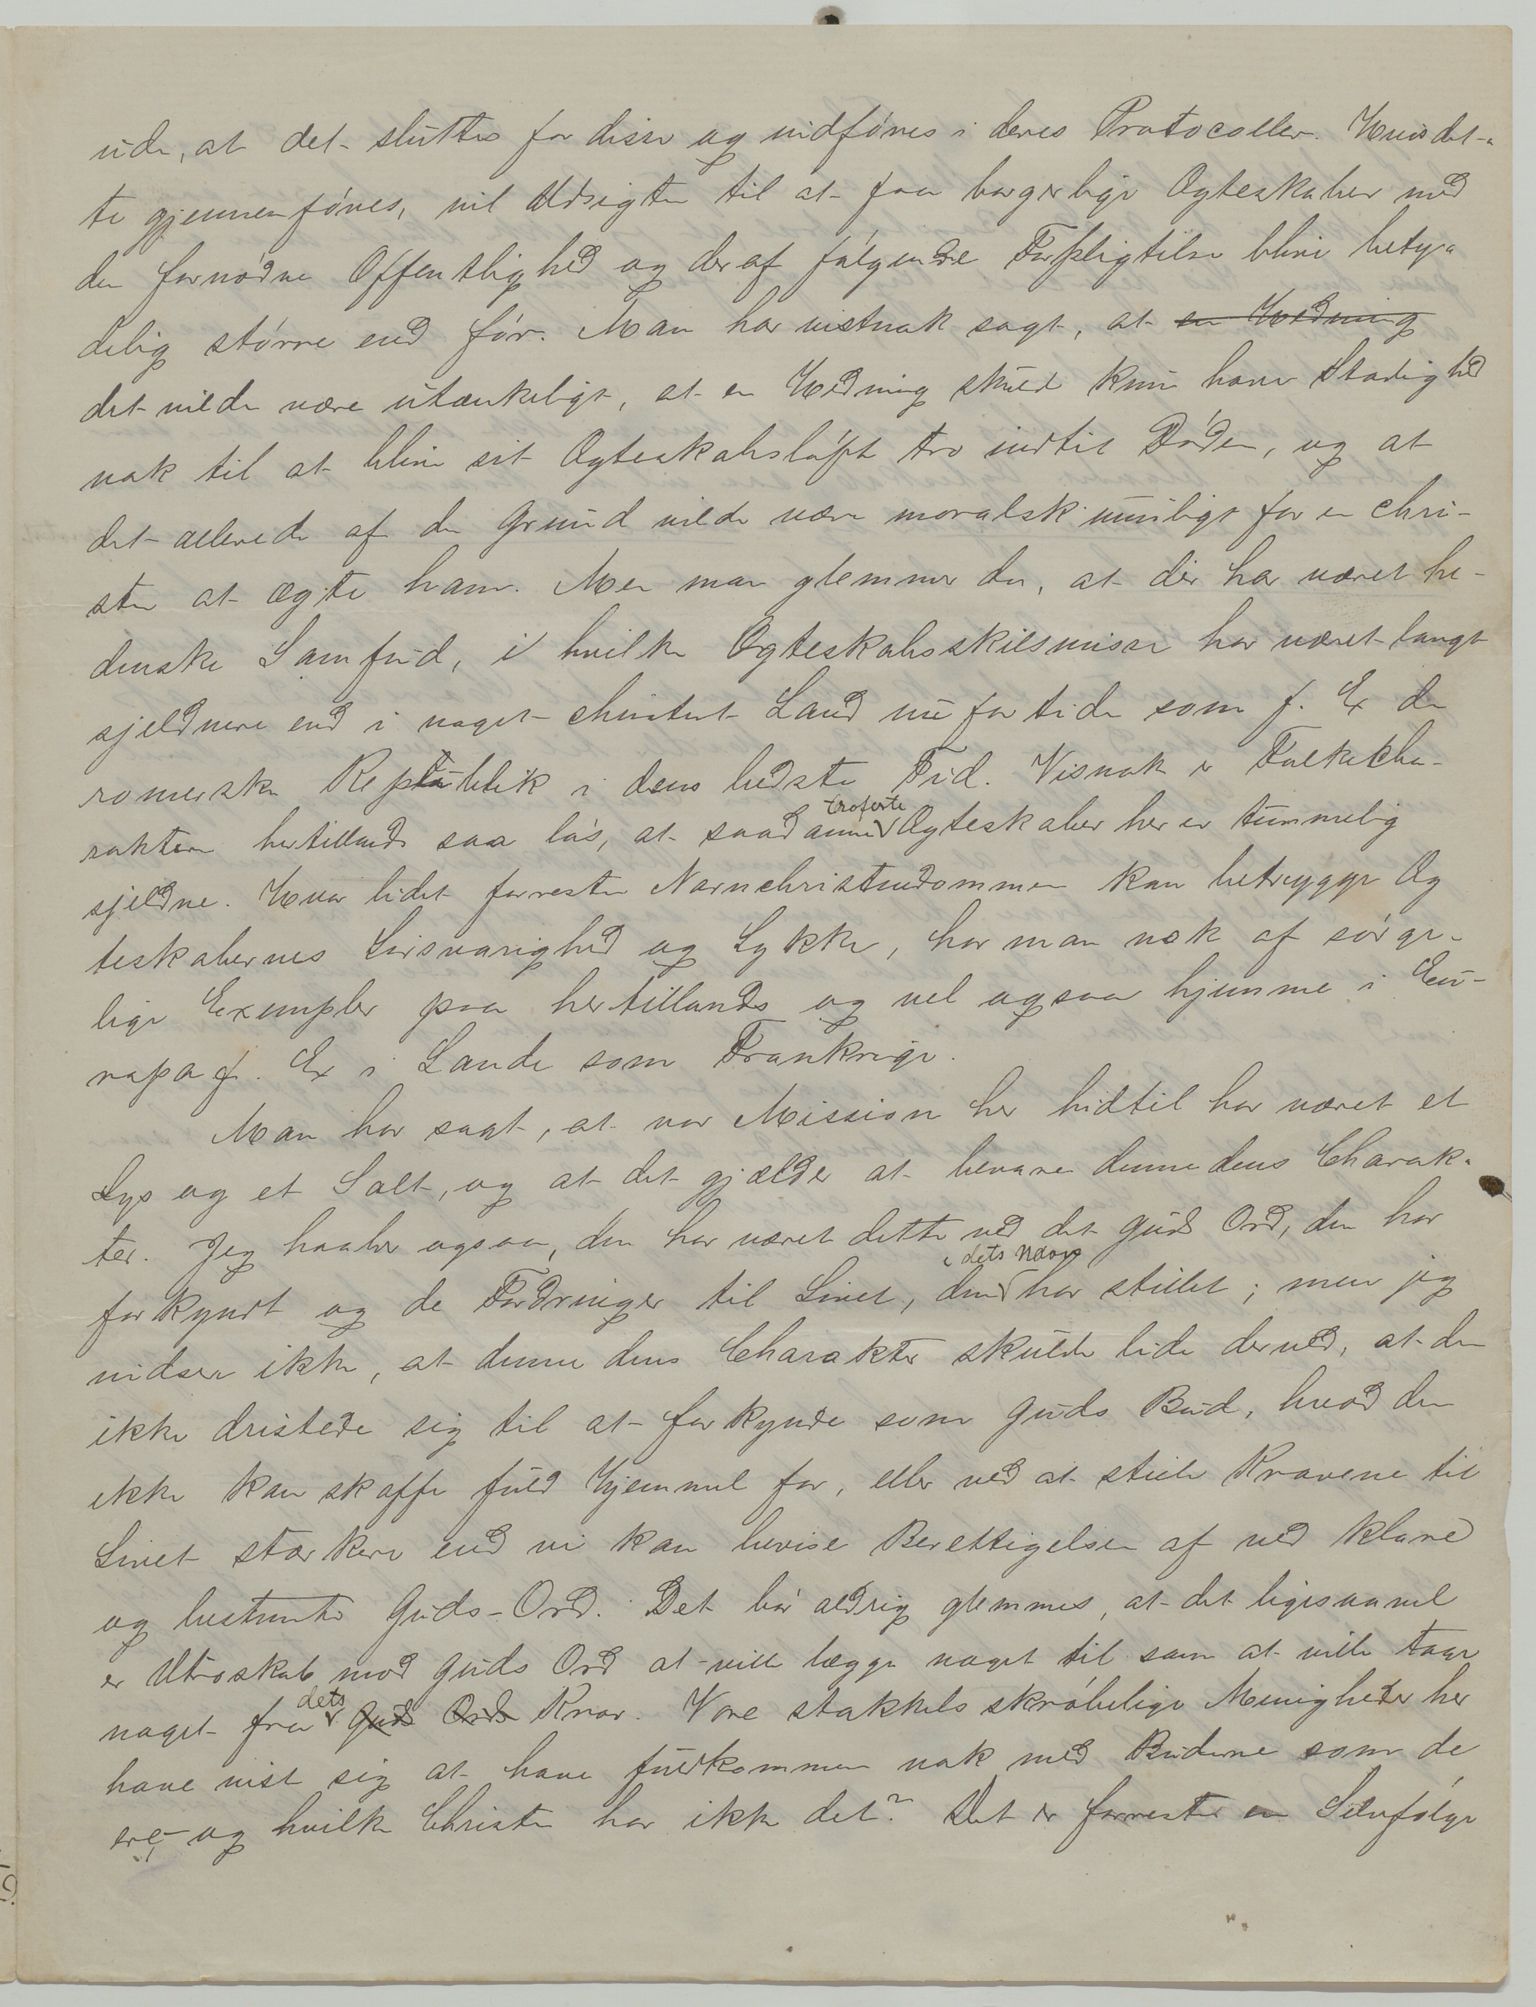 ude, at det sluttes for disse og indføres i deres Protocoller. Hvis det-
te gjennemføres, vil Udsigten til at faa borgerlige Ægteskaber med
den fornødne Offentlighed og deraf følgende Forpligtelse blive bety-
delig større end før. Man har vistnok sagt, at en Hedning
det vilde være utænkeligt, at en Hedning skulde kunne have Stadighed
nok til at blive sit Ægteskabsløfte tro indtil Døden, og at
det allerede af den Grund vilde være moralsk umuligt for en Chri-
sten at ægte ham. Men man glemmer da, at der har været he-
denske Samfund, i hvilke Ægteskabsskilsmisse har været langt
sjeldnere end i noget christent Land nu for tiden som f. Ex den
romerske Republik i dens bedste Tid. Visnok er Folkecha-
rakteren hertillands saa løs, at saadanne trofaste Ægteskaber her er temmelig
sjeldne. Hvor lidet forresten Navnchristendommen kan betrygge Æg
teskabernes Livsvarighed og Lykke, har man nok af sørge-
lige Exempler paa hertillands og vel ogsaa hjemme i Eu-
ropa f. Ex i Lande som Frankrige.
Man har sagt, at vor Mission her hidtil har været et
Lys og et Salt, og at det gjælder at bevare denne dens Charak-
ter. Jeg haaber ogsaa, den har været dette ved det Guds Ord, den har
forkyndt og de Fordringer til Livet, den i dets Navn har stillet; men jeg
indser ikke, at denne dens Charakter skulde lide derved, at den
ikke dristede sig til at forkynde som Guds Bud, hvad den
ikke kan skaffe fuld Hjemmel for, eller ved at stille Kravene til
Livet stærkere end vi kan bevise Berettigelsen af ved klare
og bestemte Guds-Ord. Det bør aldrig glemmes, at det ligesaavel
er Utroskab mod Guds Ord at ville lægge noget til som at ville tage
noget fra dets Guds Ords Krav. Vore stakkels skrøbelige Menigheder her
have vist sig at have fuldkommen nok med Budene som de
ere, og hvilken Christen har ikke det? Det er forresten en Selvfølge